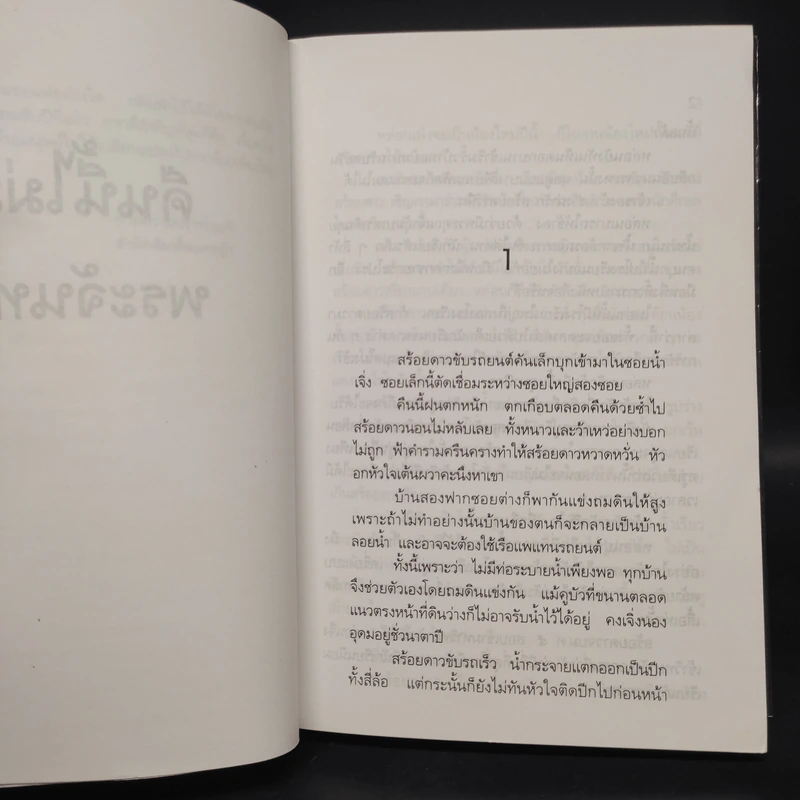 คืนนี้ไม่
พระจันท
1
สร้อยดาวขับรถยนต์คันเล็กบุกเข้ามาในซอยน้ำ
เจิ่ง ซอยเล็กนี้ตัดเชื่อมระหว่างซอยใหญ่สองซอย
คืนนี้ฝนตกหนัก ตกเกือบตลอดคืนด้วยซ้ำไป
สร้อยดาวนอนไม่หลับเลย ทั้งหนาวและว้าเหว่อย่างบอก
ไม่ถูก ฟ้าคำรามครืนครางทำให้สร้อยดาวหวาดหวั่น หัว
อกหัวใจเต้นผวาคะนึงหาเขา
บ้านสองฟากซอยต่างก็พากันแข่งถมดินให้สูง
เพราะถ้าไม่ทำอย่างนั้นบ้านของตนก็จะกลายเป็นบ้าน
ลอยน้ำ และอาจจะต้องใช้เรือแพแทนรถยนต์
ทั้งนี้เพราะว่า ไม่มีท่อระบายน้ำเพียงพอ ทุกบ้าน
จึงช่วยตัวเองโดยถมดินแข่งกัน แม้คูบัวที่ขนานตลอด
แนวตรงหน้าที่ดินว่างก็ไม่อาจรับน้ำไว้ได้อยู่ คงเจิ่งนอง
อุดมอยู่ชั่วนาตาปี
สร้อยดาวขับรถเร็ว น้ำกระจายแตกออกเป็นปีก
ทั้งสี่ล้อ แต่กระนั้นก็ยังไม่ทันหัวใจติดปีกไปก่อนหน้า